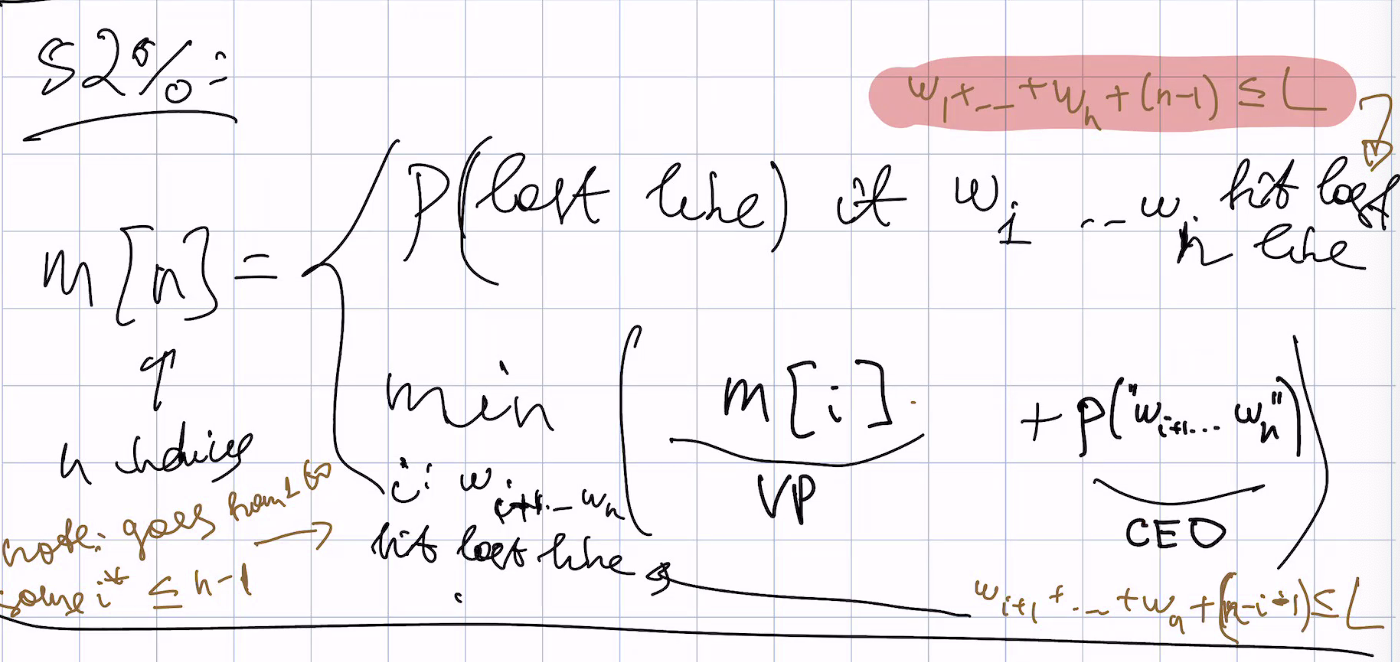 52%:
w_1 + -- + w_n + (n-1) ≤ L
m[n] = { P(last line) if w_1 -- w_n fit last line
min ( m[i] + P("w_{i+1} ... w_n") )
i: w_{i+1} -- w_n
fit last line
VP
CEO
n choices
note: goes from 1 to
some i* ≤ n-1
w_{i+1} + -- + w_n + (n-i-1) ≤ L